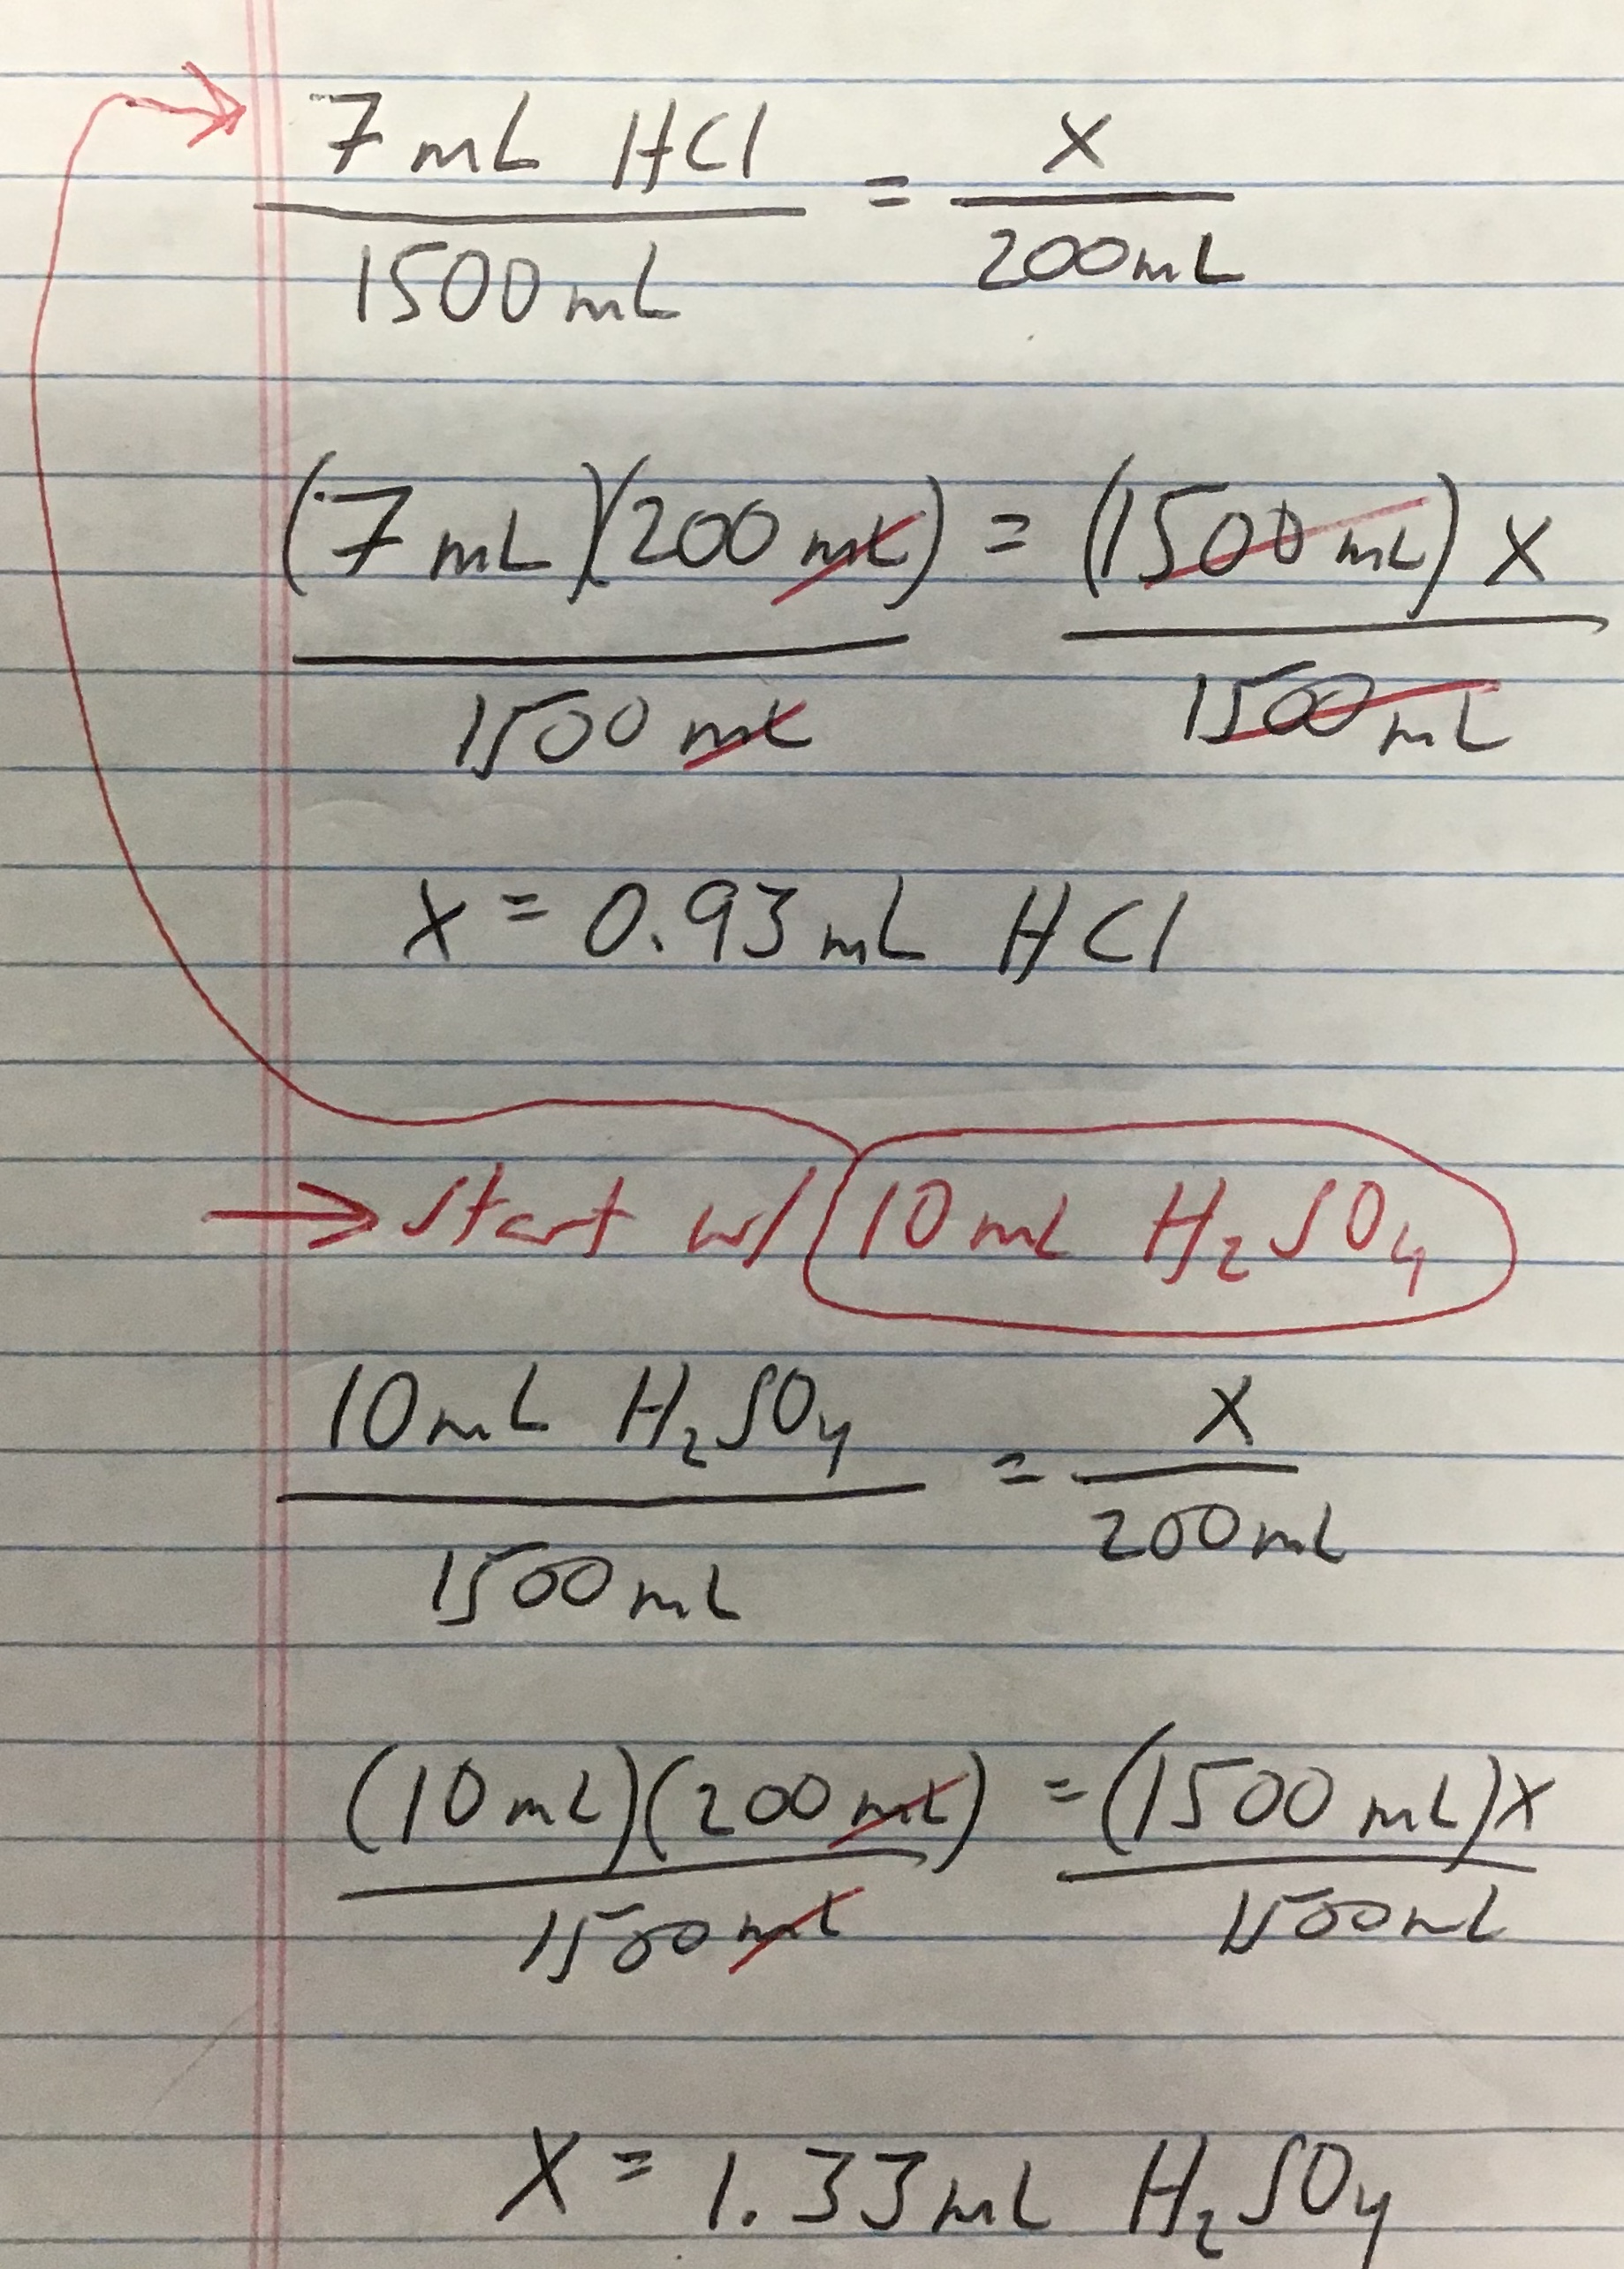 7 mL HCl = X
1500 mL 200 mL
(7 mL)(200 mL) = (1500 mL) X
1500 mL 1500 mL
X = 0.93 mL HCl
→ Start w/ 10 mL H₂SO₄
10 mL H₂SO₄ = X
1500 mL 200 mL
(10 mL)(200 mL) = (1500 mL)X
1500 mL 1500 mL
X = 1.33 mL H₂SO₄